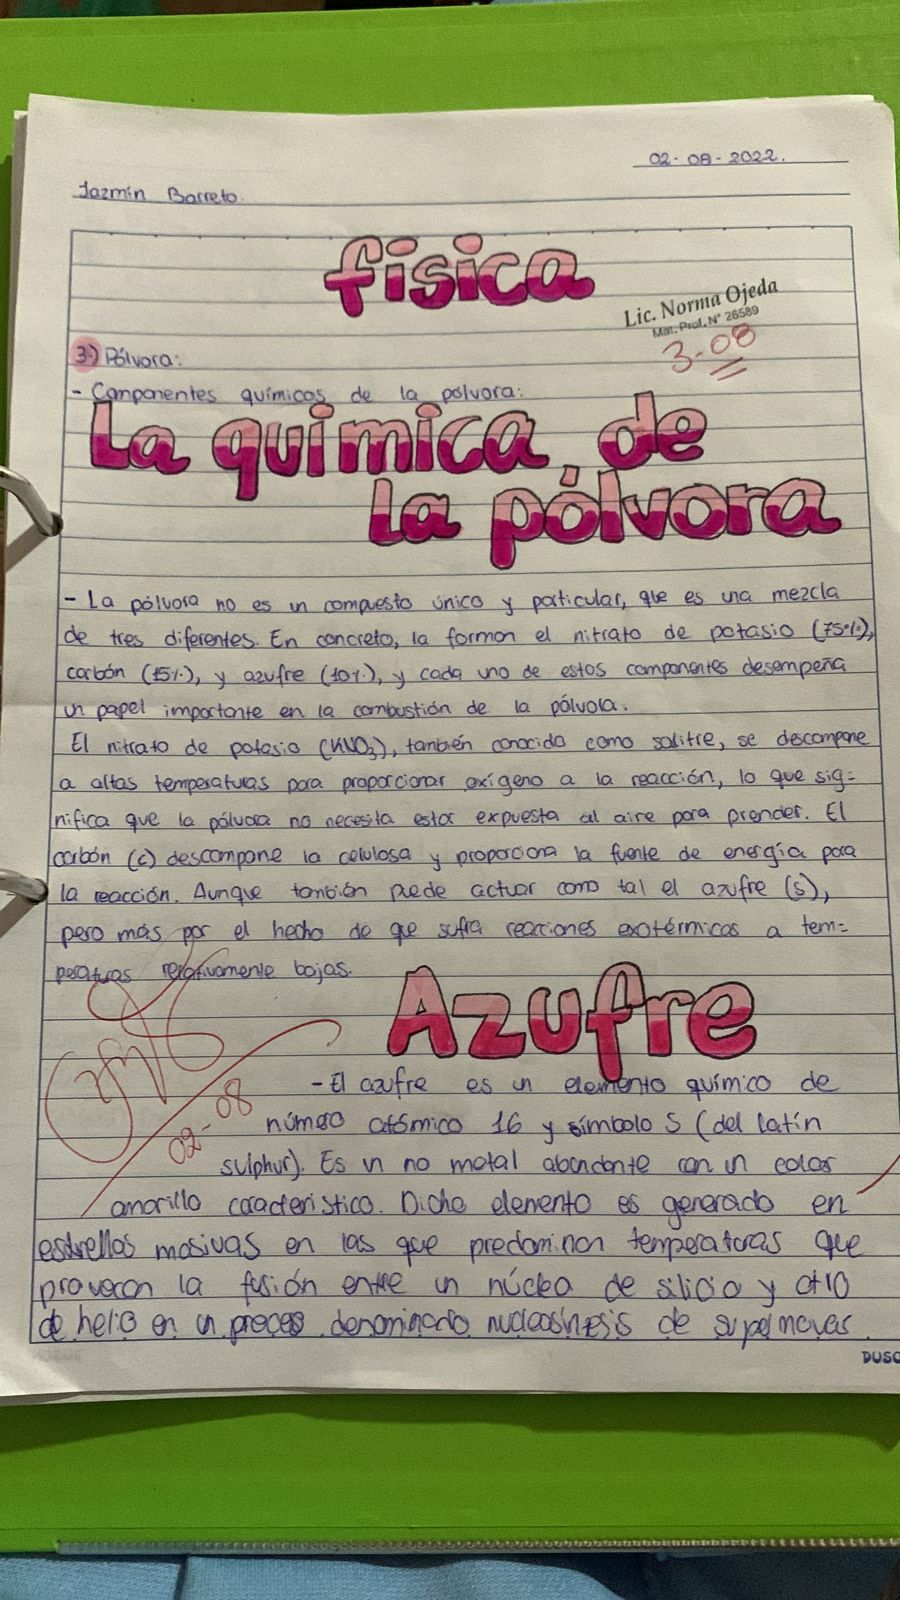 02-08-2022.
Jazmín Barreto.
física
Lic. Norma Ojeda
Mat. Prof. N° 26589
3-08
3.) Pólvora:
- Componentes químicos de la pólvora:
La química de
la pólvora
- La pólvora no es un compuesto único y particular, que es una mezcla
de tres diferentes. En concreto, la forman el nitrato de potasio (75%),
carbón (15%), y azufre (10%), y cada uno de estos componentes desempeña
un papel importante en la combustión de la pólvora.
El nitrato de potasio (KNO3), también conocido como salitre, se descompone
a altas temperaturas para proporcionar oxígeno a la reacción, lo que sig=
nifica que la pólvora no necesita estar expuesta al aire para prender. El
carbón (c) descompone la celulosa y proporciona la fuente de energía para
la reacción. Aunque también puede actuar como tal el azufre (s),
pero más por el hecho de que sufra reacciones exotérmicas a tem=
peraturas relativamente bajas.
Azufre
- El azufre es un elemento químico de
número atómico 16 y símbolo S (del latín
sulphur). Es un no metal abundante con un color
amarillo característico. Dicho elemento es generado en
estrellas masivas en las que predominan temperaturas que
provocan la fusión entre un núcleo de silicio y otro
de helio en un proceso denominado nucleosíntesis de supernovas.
02-08
DUSC